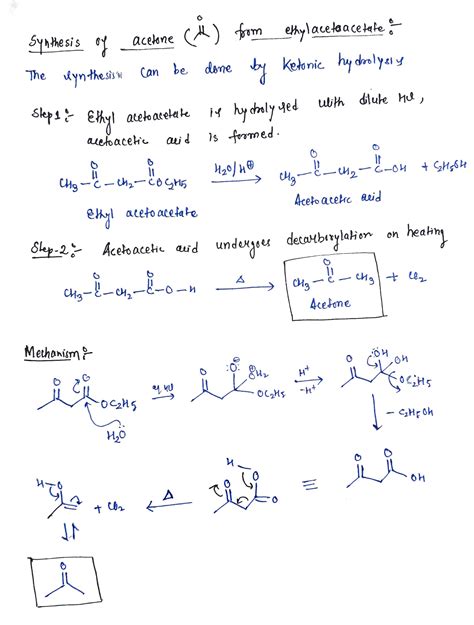 Synthesis of acetone (O) from ethylacetoacetate:-
The synthesis can be done by Ketonic hydrolysis
Step 1:- Ethyl acetoacetate is hydrolysed with dilute HCl,
acetoacetic acid is formed.
O O O O
CH3-C-CH2-COC2H5 H2O/H⊕ CH3-C-CH2-C-OH + C2H5OH
Ethyl acetoacetate Acetoacetic acid
Step-2:- Acetoacetic acid undergoes decarboxylation on heating
O O O
CH3-C-CH2-C-O-H Δ CH3-C-CH3 + CO2
Acetone
Mechanism:-
O O OC2H5 H2O dil HCl O O⊖ ⊕OH2 OC2H5 H+ -H+ O OH OH OC2H5
-C2H5OH
H-O + CO2 Δ H O O O ≡ O O OH
O